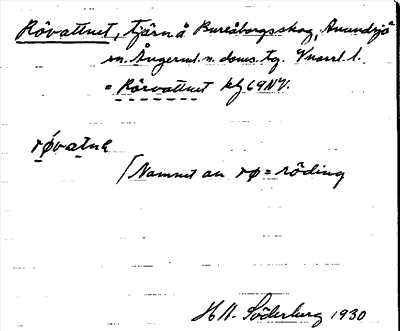 Rövattnet, tjärn å Bureåborgsskog, Anundsjö
sn. Ångerml. n. doms. tg. Vnorrl. l.
= Rörvattnet kbl 69NV.
røvatnɐ
[Namnet av rø = röding
H. Söderberg 1930